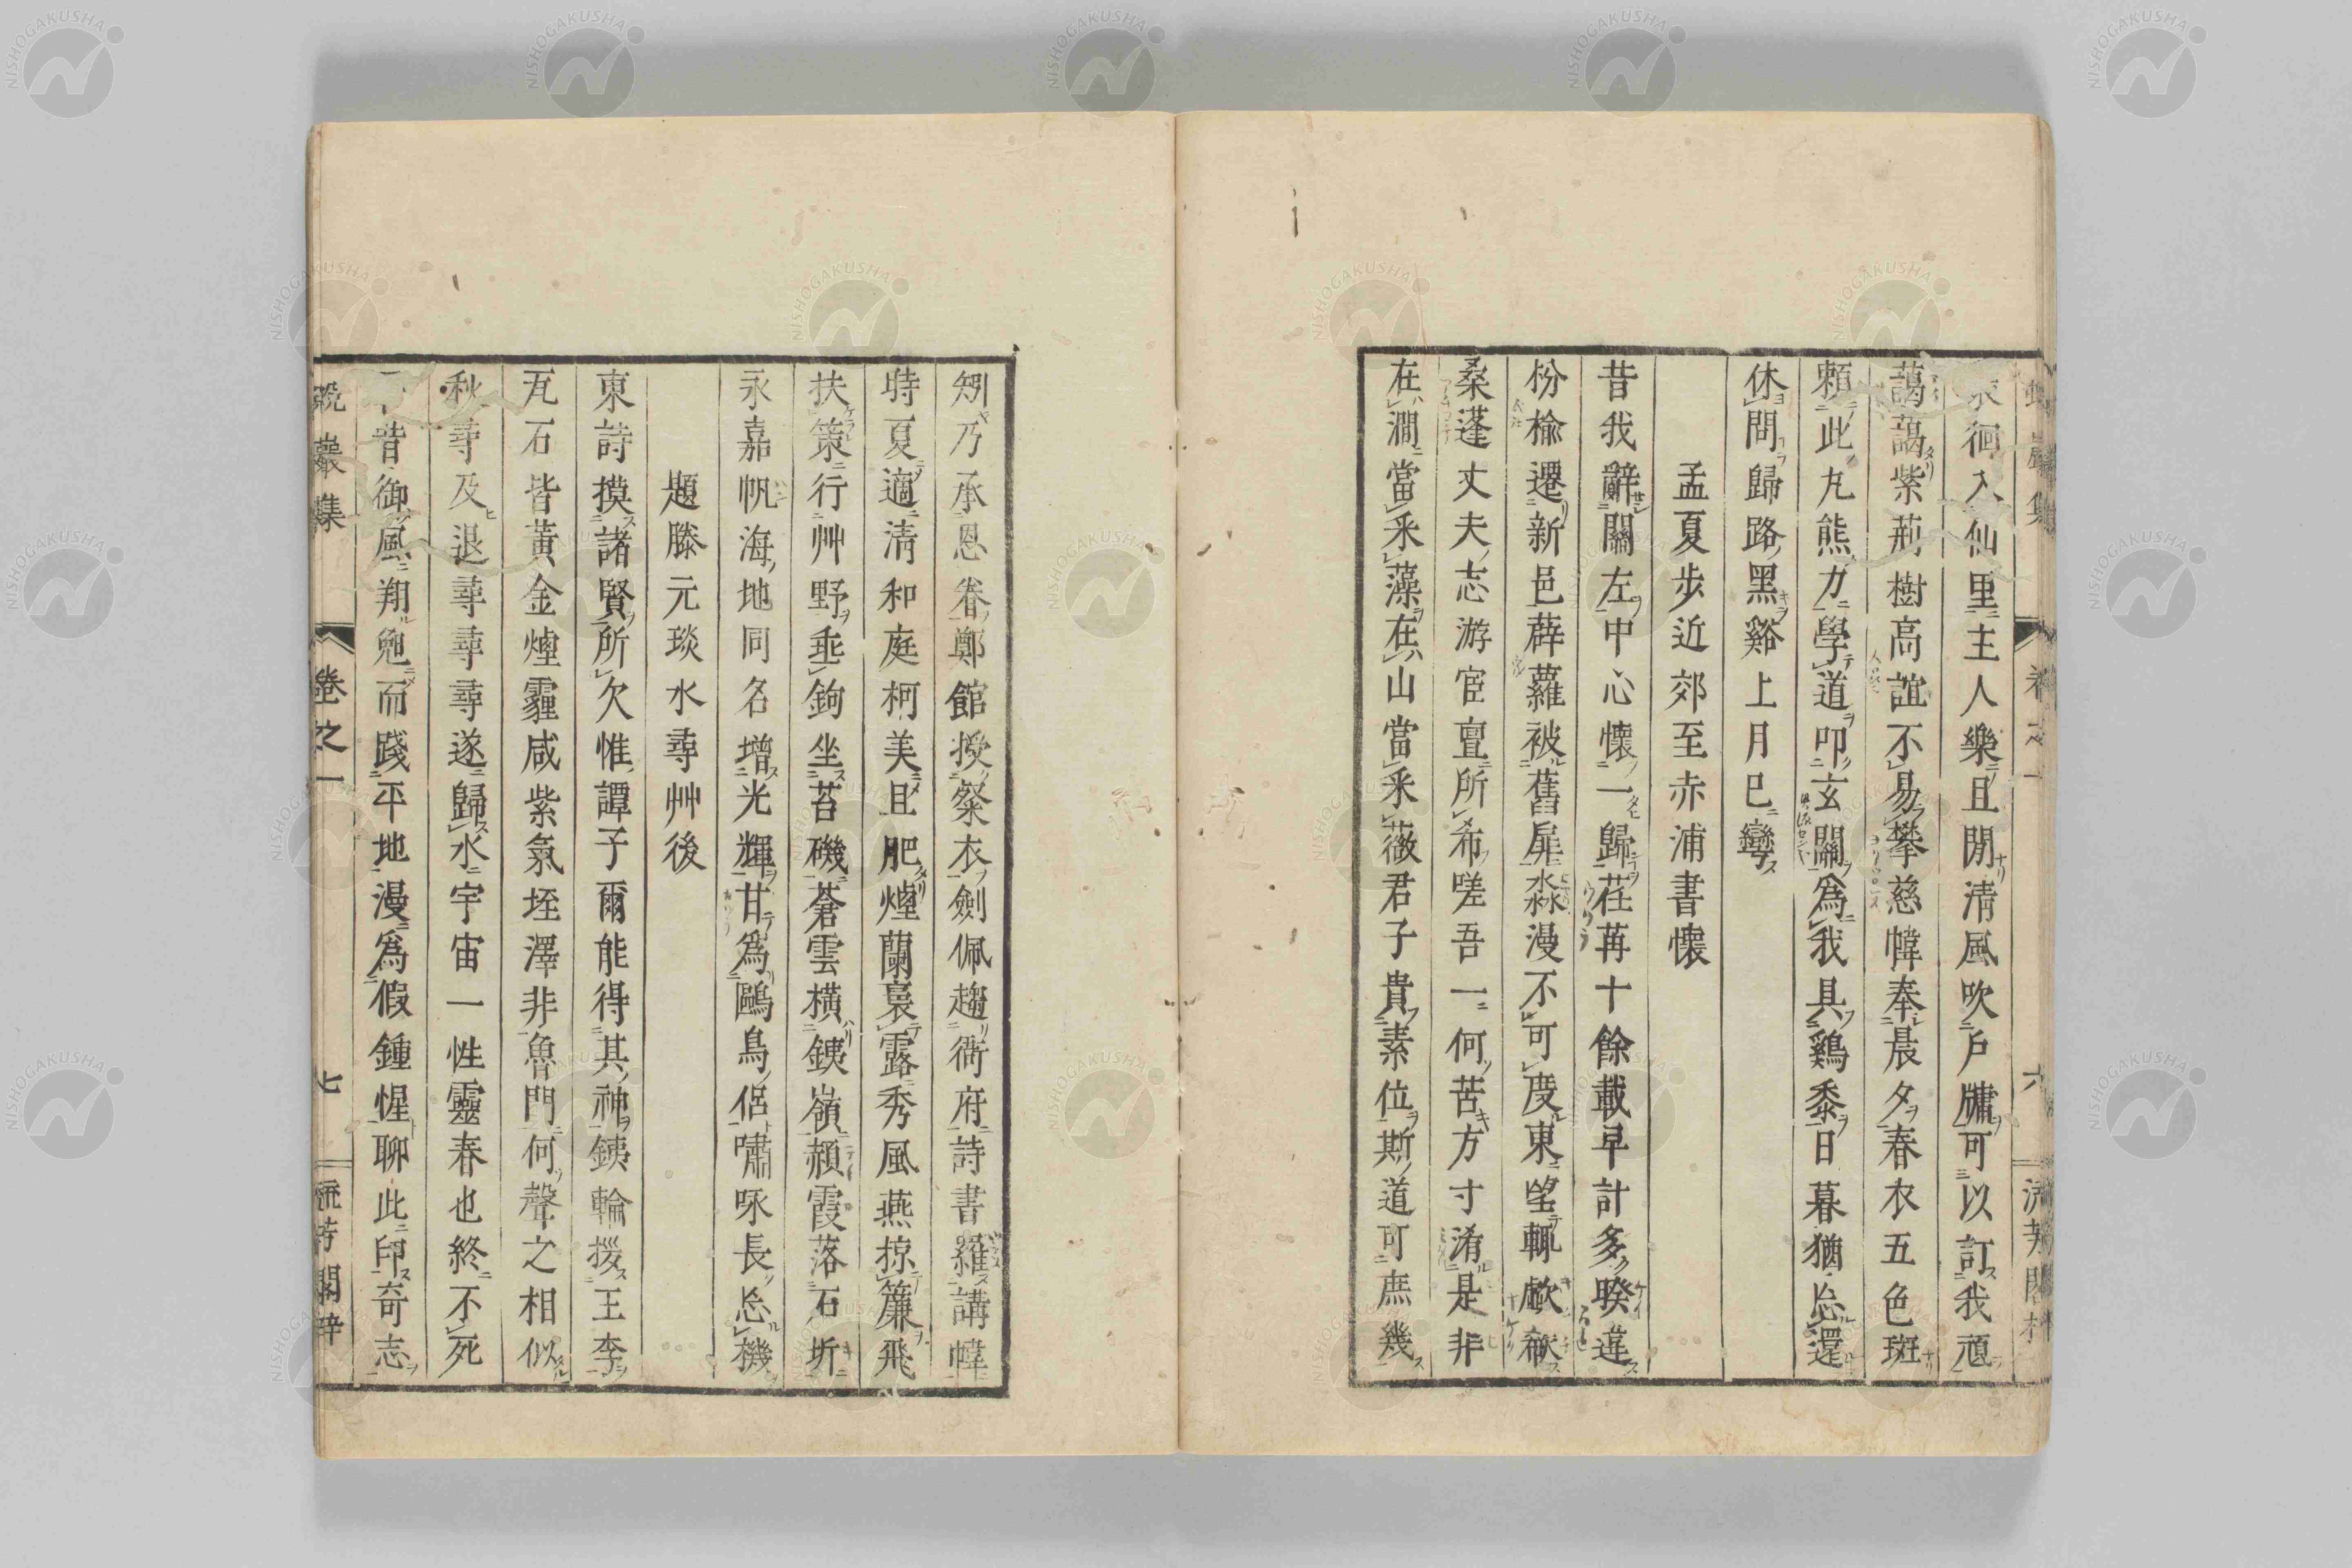 徊入仙里主人樂且閒淸風吹戶牗可以訂我頑
藹藹紫荊樹高誼不易攀慈幃奉晨夕春衣五色斑
賴此丸熊力學道叩玄關爲我具鷄黍日暮猶忘還
休問歸路黑谿上月巳彎
孟夏步近郊至赤浦書懷
昔我辭關左中心懷一歸荏苒十餘載早計多暌違
枌楡遷新邑薜蘿被舊扉淼漫不可度東望輒歔欷
桑蓬丈夫志游宦亶所希嗟吾一何苦方寸淆是非
在澗當采藻在山當采薇君子貴素位斯道可庶幾
矧乃承恩眷鄭館授粲衣劍佩趨衙府詩書羅講幃
時夏適淸和庭柯美且肥煙蘭裛露秀風燕掠簾飛
扶策行艸野垂鉤坐苔磯蒼雲橫銕嶺赬霞落石圻
永嘉帆海地同名增光輝甘爲鷗鳥侶嘯咏長忘機
題滕元琰水尋艸後
東詩摸諸賢所欠惟譚子爾能得其神銕輪掇王李
瓦石皆黃金煙霾咸紫氣垤澤非魯門何聲之相似
秋尋及退尋尋尋遂歸水宇宙一性靈春也終不死
昔御風翔兜而踐平地漫爲假鍾惺聊此印奇志
巖集 卷之一 七